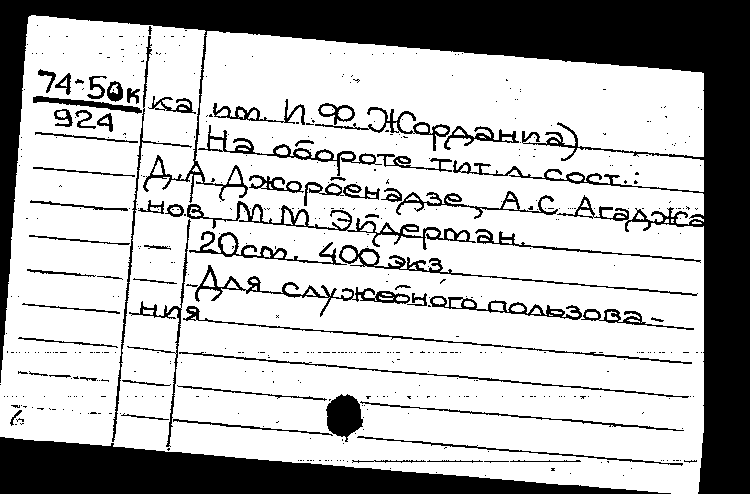 74-50к
924
ка им. И.Ф. Жордания)
На обороте тит. л. сост.:
Д.А. Джорбенадзе, А.С. Агаджа
нов, М.М. Эйдерман.
— 20 ст. 400 экз.
Для служебного пользова-
ния